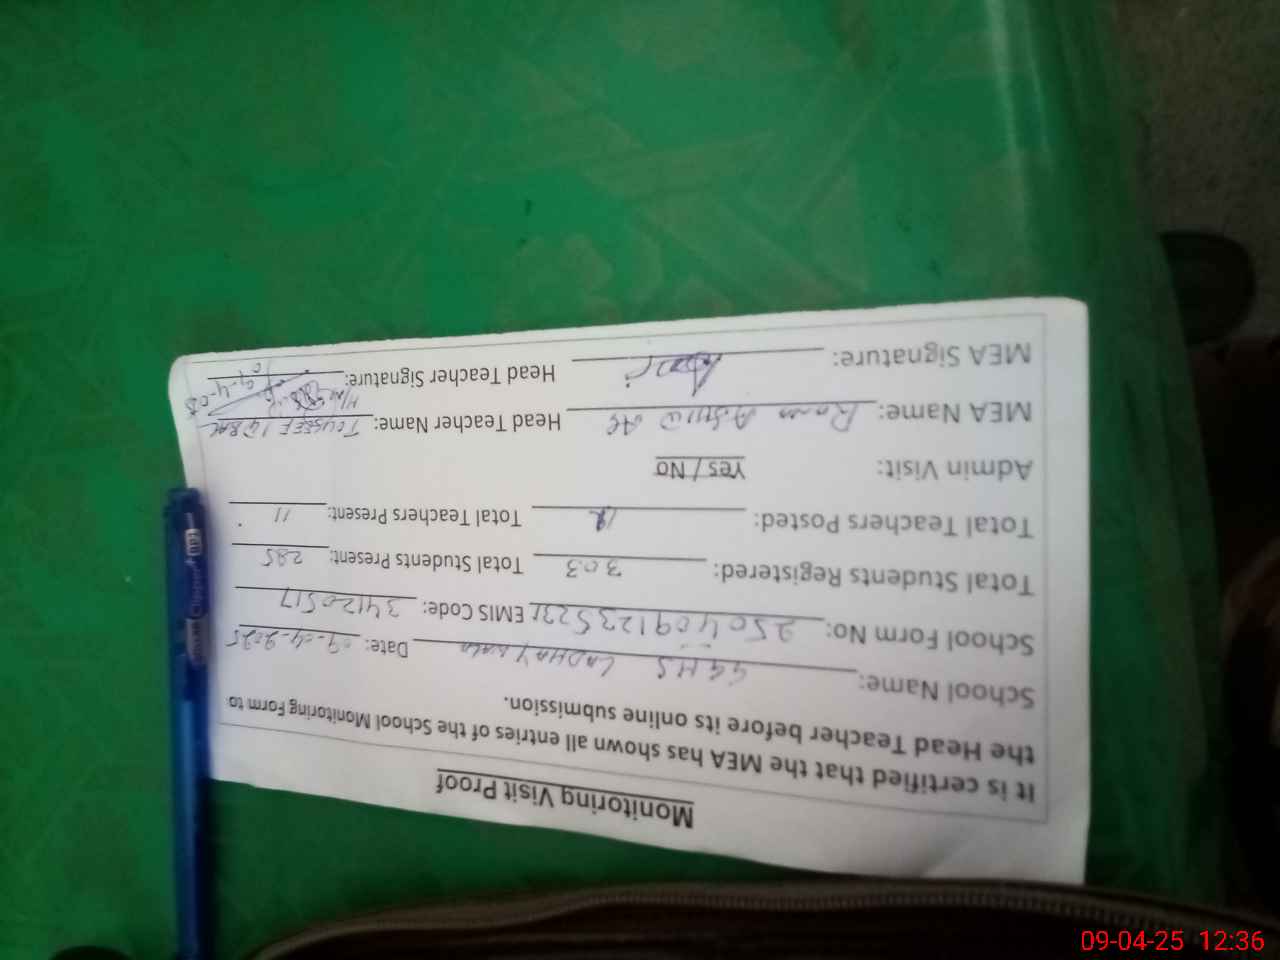 Monitoring Visit Proof
It is certified that the MEA has shown all entries of the School Monitoring Form to
the Head Teacher before its online submission.
School Name: GGHS LADHAYWALA Date: 09-04-2025
School Form No: EMIS Code: 34120517
Total Students Registered: 303 Total Students Present: 285
Total Teachers Posted: 12 Total Teachers Present: 11
Admin Visit: Yes / No
MEA Name: Rana Head Teacher Name: IQBAL
MEA Signature: Head Teacher Signature:
09-04-25 12:36